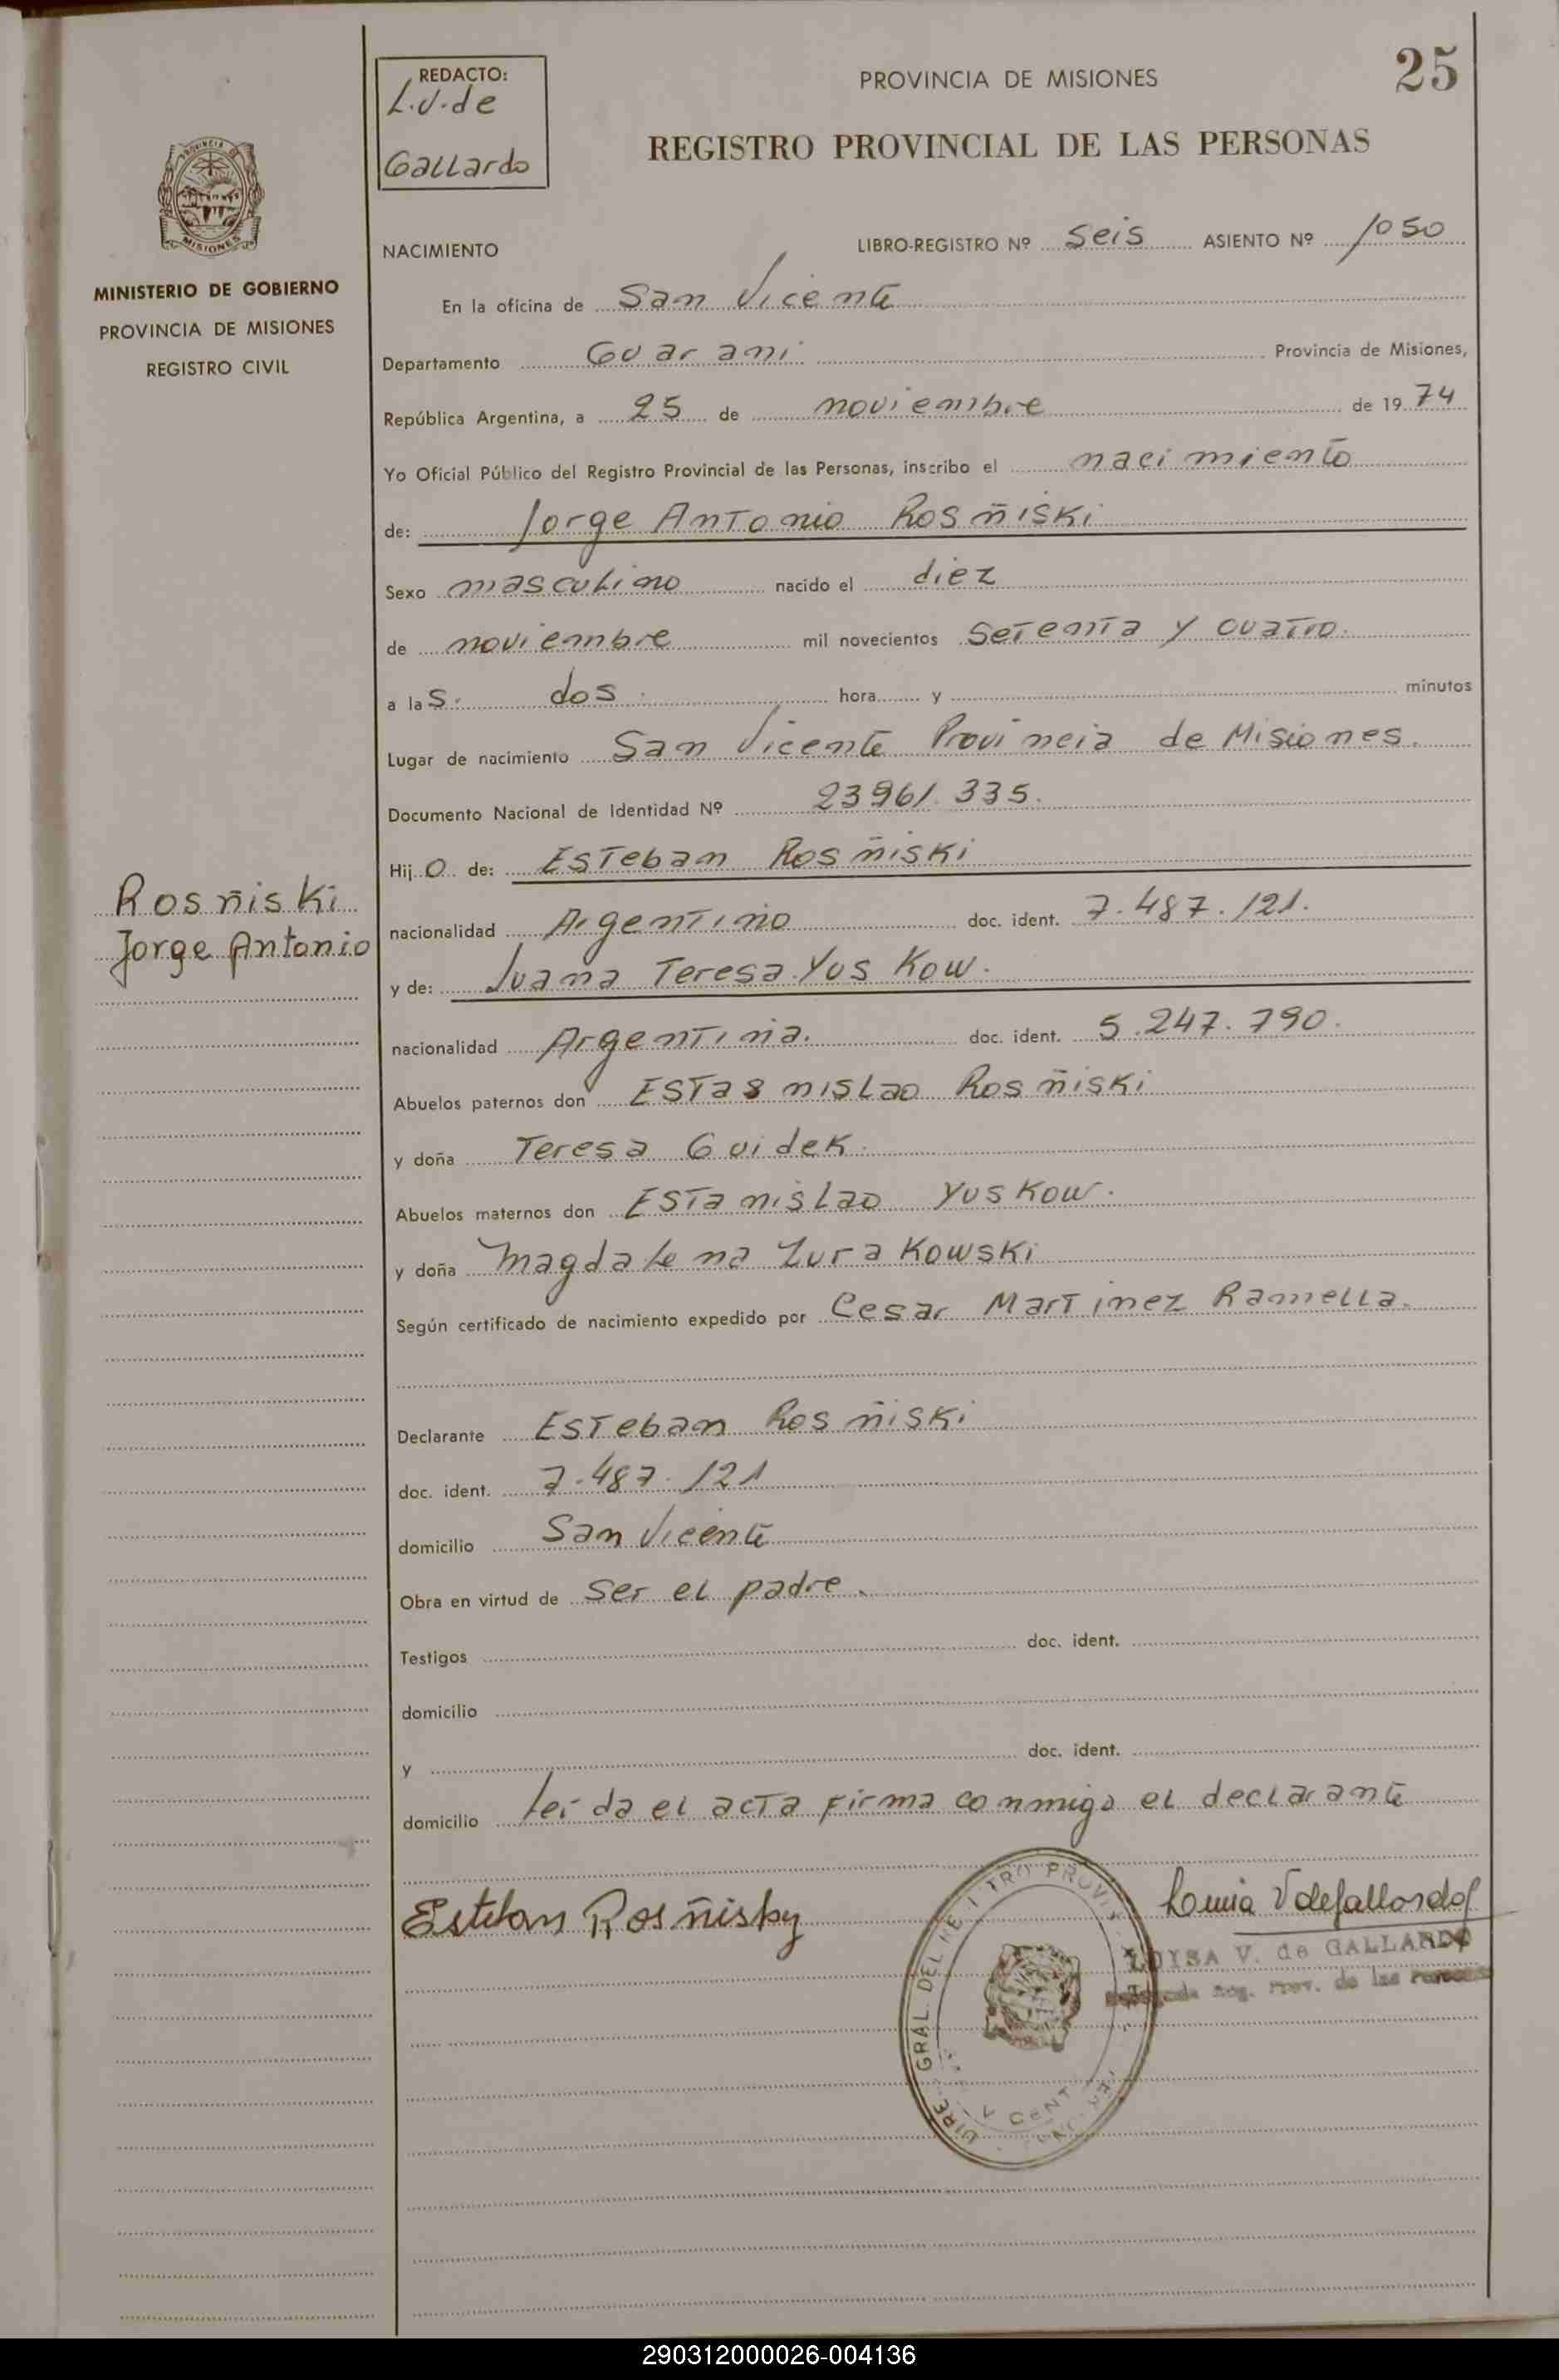 REDACTO:
L.V. de
Gallardo
PROVINCIA DE MISIONES
25
REGISTRO PROVINCIAL DE LAS PERSONAS
MISIONES
MINISTERIO DE GOBIERNO
PROVINCIA DE MISIONES
REGISTRO CIVIL
NACIMIENTO LIBRO-REGISTRO Nº Seis ASIENTO Nº 1050
En la oficina de San Vicente
Departamento Guarani Provincia de Misiones,
República Argentina, a 25 de noviembre de 1974
Yo Oficial Público del Registro Provincial de las Personas, inscribo el nacimiento
de: Jorge Antonio Rosñiski
Sexo masculino nacido el diez
de noviembre mil novecientos setenta y cuatro.
a las. dos. hora y minutos
Lugar de nacimiento San Vicente Provincia de Misiones.
Documento Nacional de Identidad Nº 23961.335.
Hijo de: Esteban Rosñiski
Rosñiski
Jorge Antonio
nacionalidad Argentino doc. ident. 7.487.121.
y de: Juana Teresa Yuskow.
nacionalidad Argentina. doc. ident. 5.247.790.
Abuelos paternos don Estasnislao Rosñiski
y doña Teresa Guidek.
Abuelos maternos don Estanislao Yuskow.
y doña Magdalena Zurakowski
Según certificado de nacimiento expedido por Cesar Martinez Ramella.
Declarante Esteban Rosñiski
doc. ident. 7.487.121
domicilio San Vicente
Obra en virtud de ser el padre.
Testigos doc. ident.
domicilio
y doc. ident.
domicilio leida el acta firma conmigo el declarante
Esteban Rosñisky
LUISA V. de GALLARDO
Reg. Prov. de las Personas
290312000026-004136